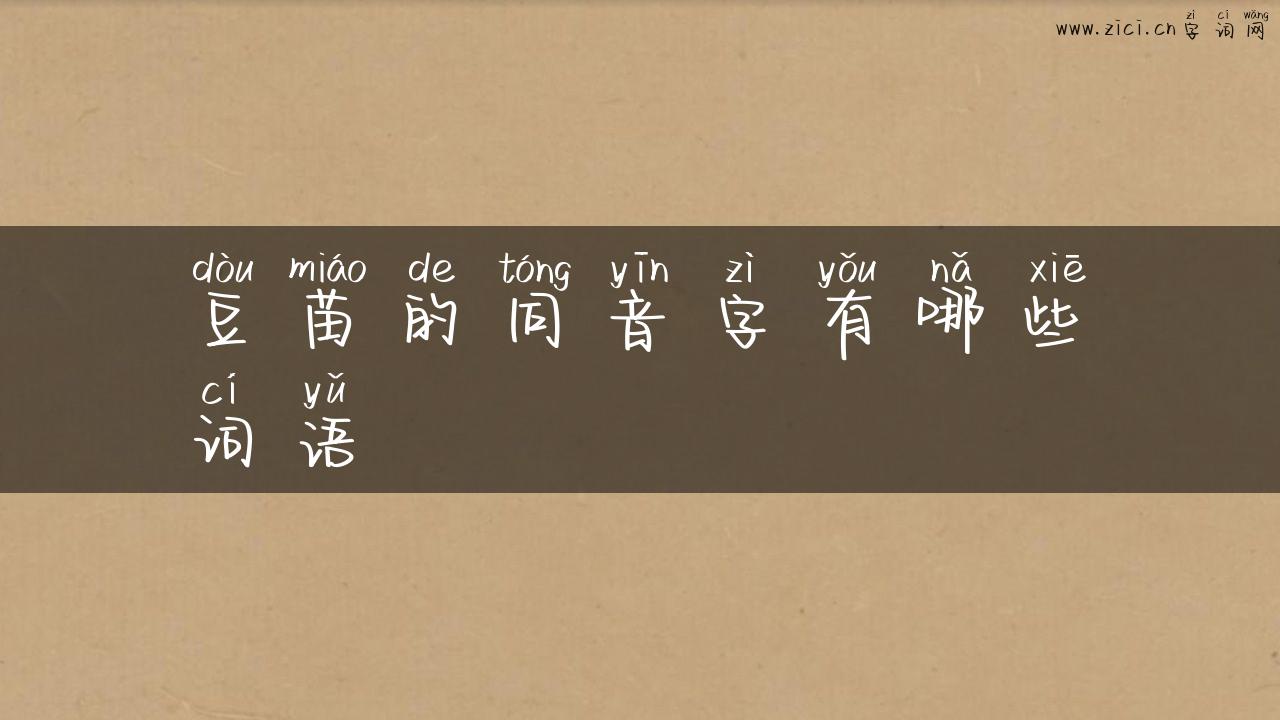 zì cí wǎng
www.zici.cn 字词网
dòu miáo de tóng yīn zì yǒu nǎ xiē
豆苗的同音字有哪些
cí yǔ
词语